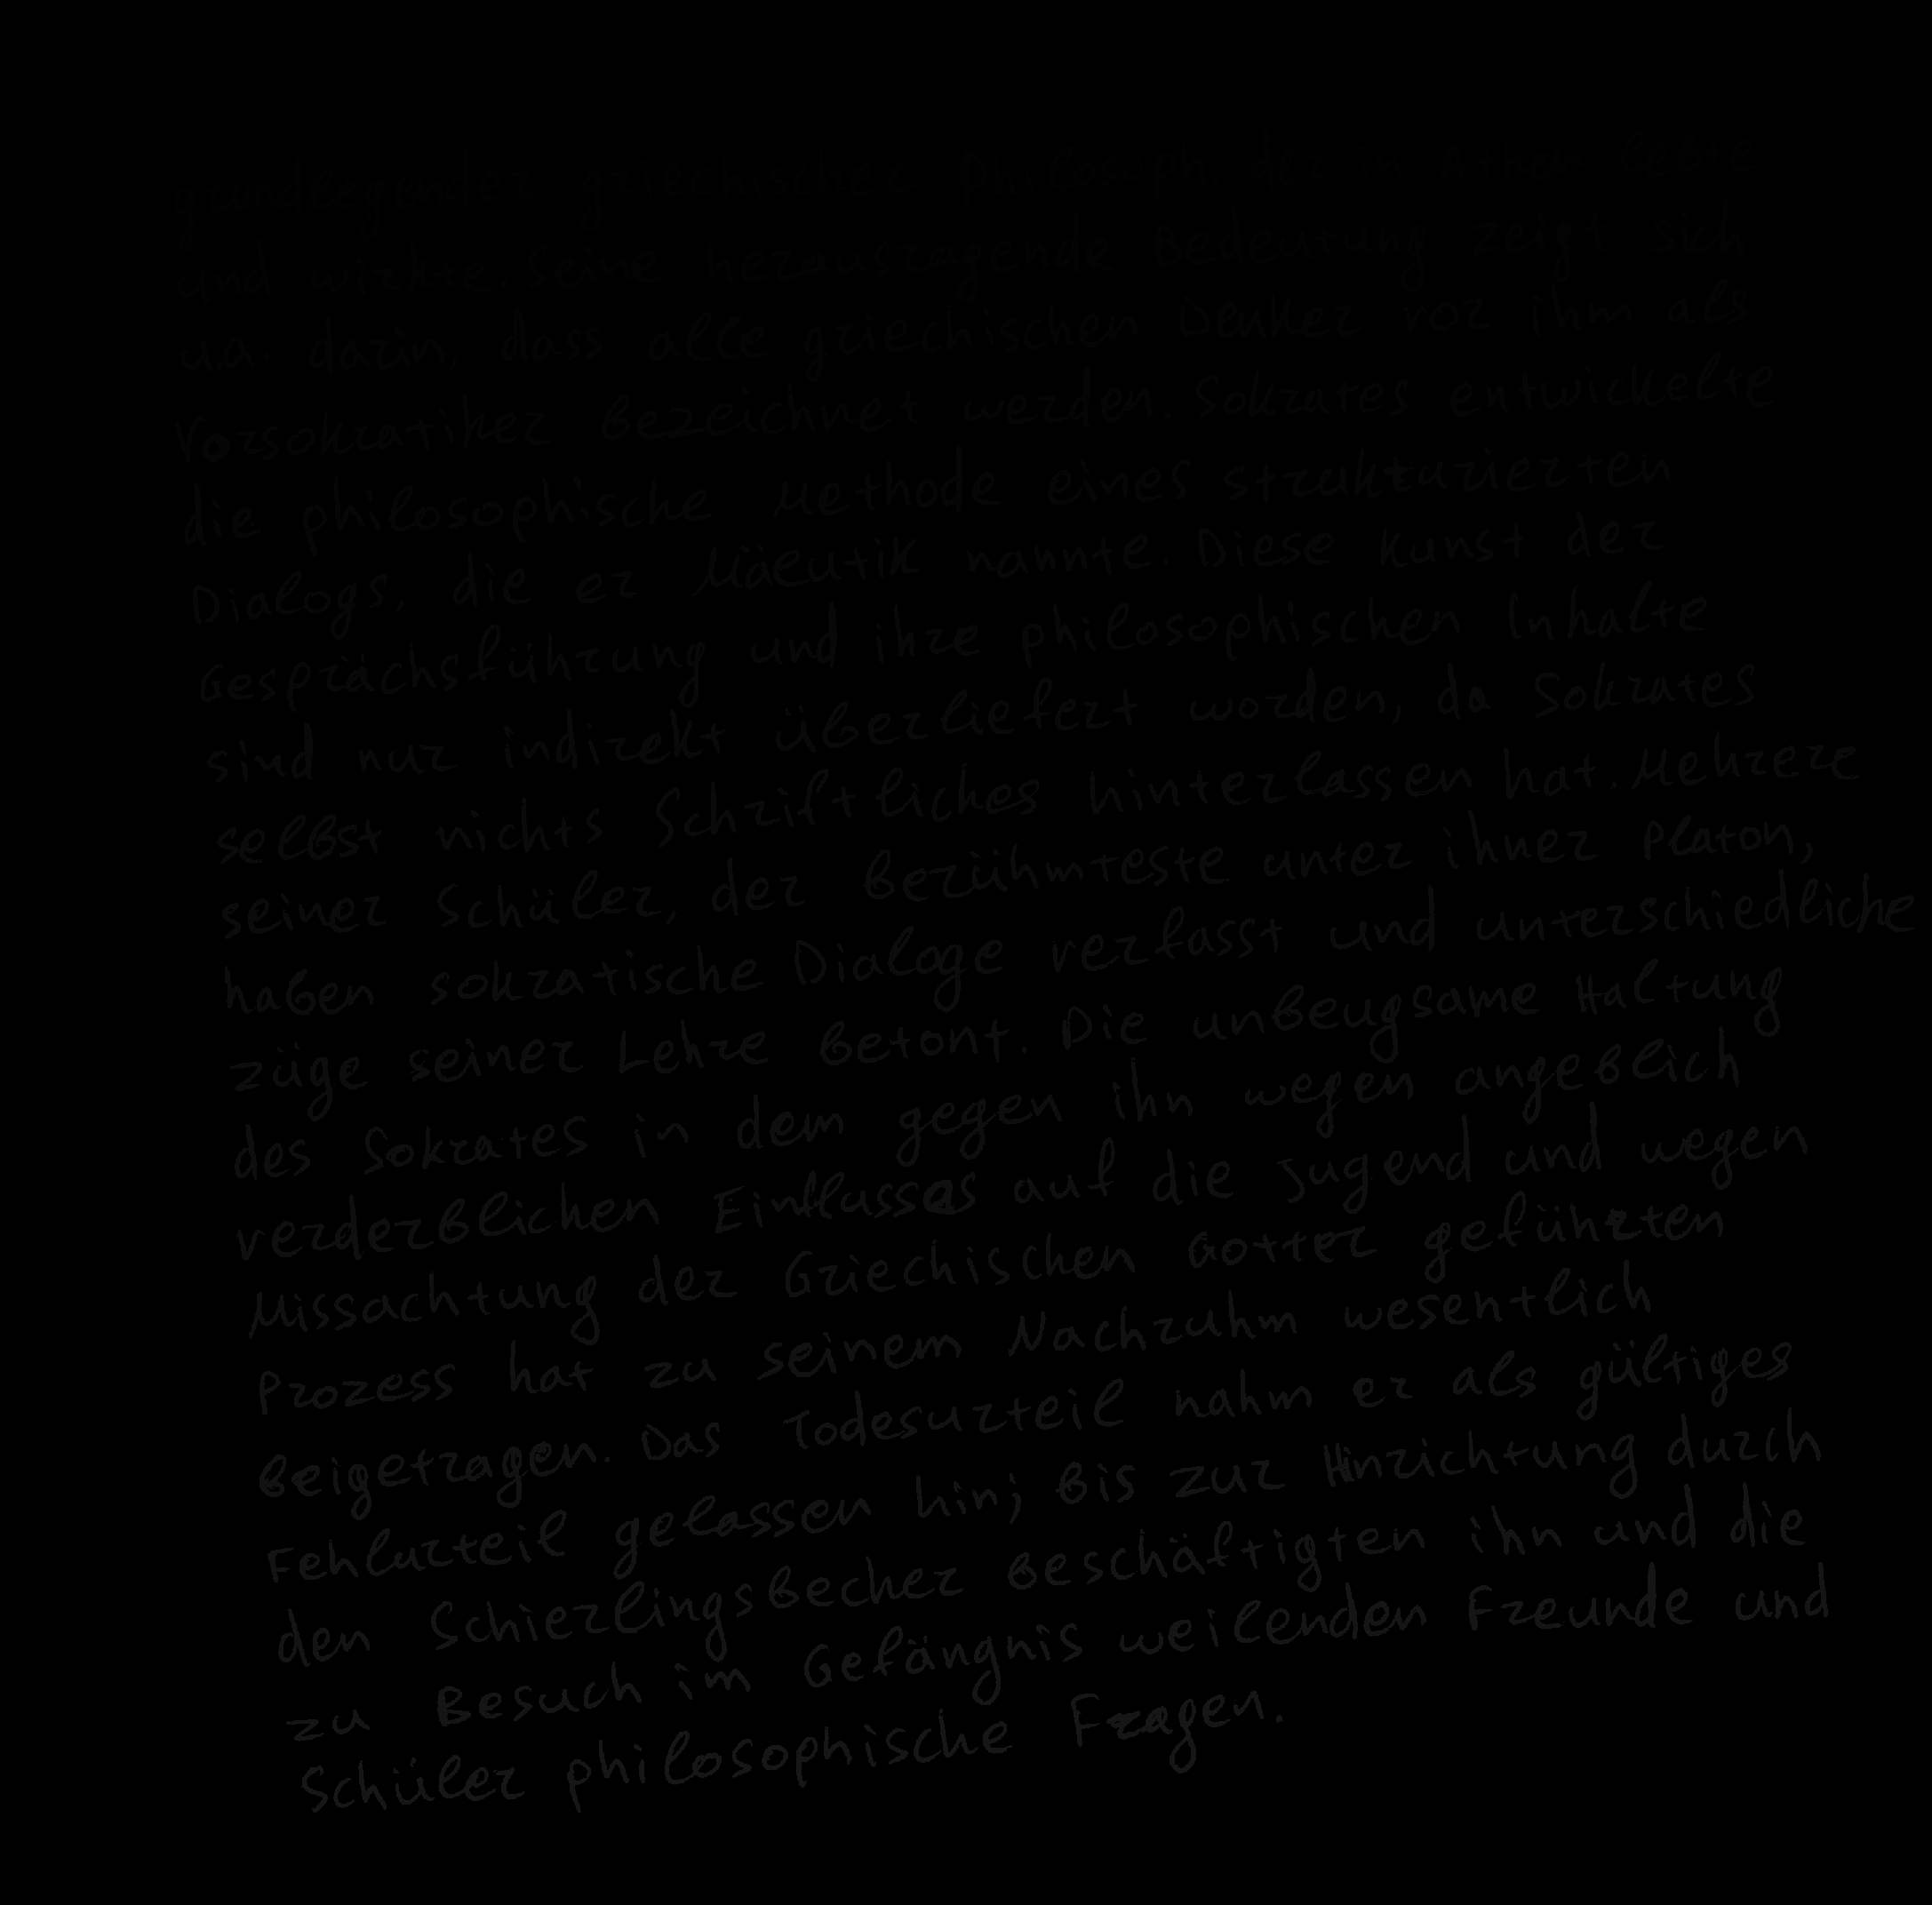 Sokrates war ein für das abendländische Denken
grundlegender griechischer Philosoph, der in Athen lebte
und wirkte. Seine herausragende Bedeutung zeigt sich
u.a. darin, dass alle griechischen Denker vor ihm als
Vorsokratiker bezeichnet werden. Sokrates entwickelte
die philosophische Methode eines strukturierten
Dialogs, die er Mäeutik nannte. Diese Kunst der
Gesprächsführung und ihre philosophischen Inhalte
sind nur indirekt überliefert worden, da Sokrates
selbst nichts Schriftliches hinterlassen hat. Mehrere
seiner Schüler, der berühmteste unter ihner Platon,
haben sokratische Dialoge verfasst und unterschiedliche
züge seiner Lehre betont. Die unbeugsame Haltung
des Sokrates in dem gegen ihn wegen angeblich
verderblichen Einflusses auf die Jugend und wegen
Missachtung der Griechischen Gotter geführten
Prozess hat zu seinem Nachruhm wesentlich
beigetragen. Das Todesurteil nahm er als gültiges
Fehlurteil gelassen hin; bis zur Hinrichtung durch
den Schierlingsbecher beschäftigten ihn und die
zu Besuch im Gefängnis weilenden Freunde und
Schüler philosophische Fragen.